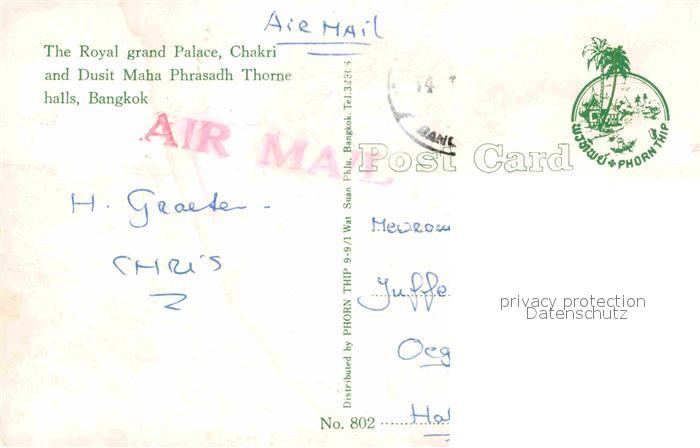 Air Mail
The Royal grand Palace, Chakri
and Dusit Maha Phrasadh Thorne
halls, Bangkok
AIR MAIL
H. Groeten -
CHRIS
Distributed by PHORN THIP 9-9/1 Wat Suan Phlu, Bangkok. Tel.
No. 802
14
BANG
พรทิพย์ PHORN THIP
Post Card
Mevrouw
Juffe
Oeg
Ha
privacy protection
Datenschutz